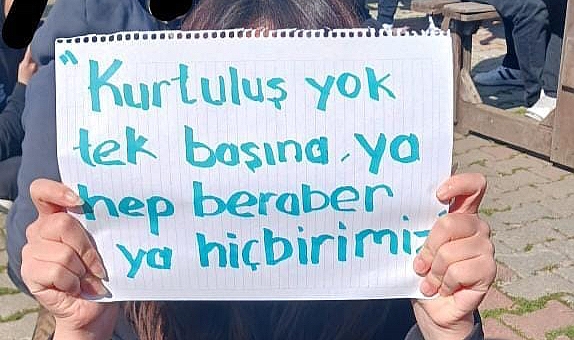 "Kurtuluş yok
tek başına, ya
hep beraber
ya hiçbirimiz